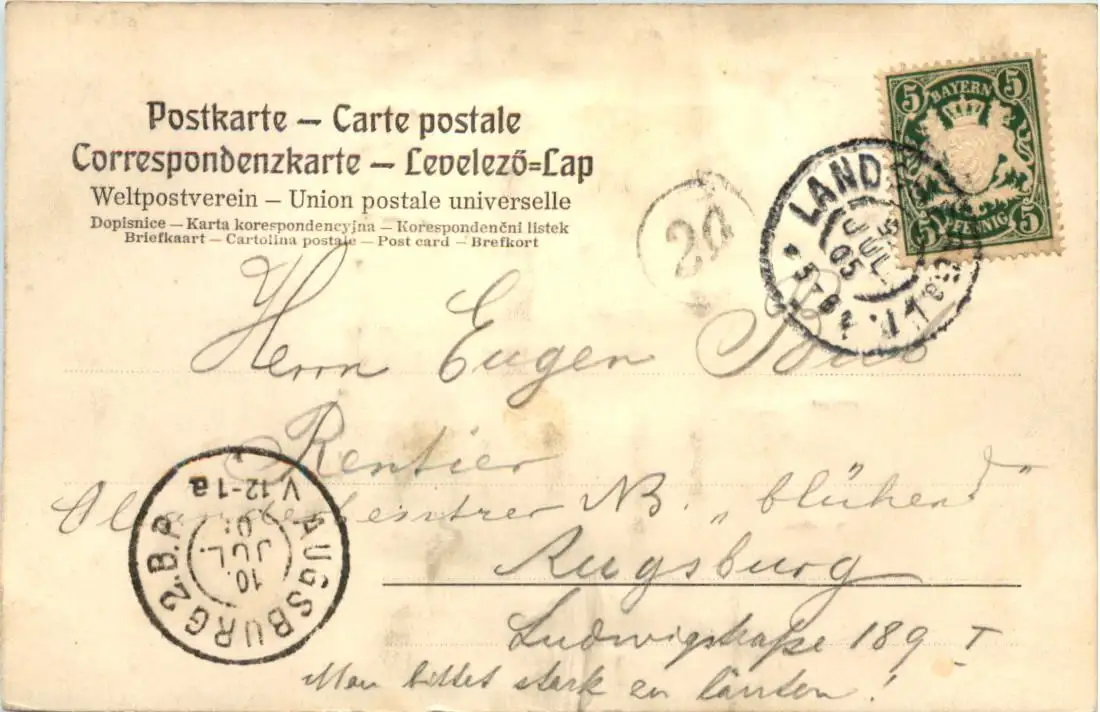 Postkarte — Carte postale
Correspondenzkarte — Levelező=Lap
Weltpostverein — Union postale universelle
Dopisnice — Karta korespondencyjna — Korespondenčni listek
Briefkaart — Cartolina postale — Post card — Brefkort
5 BAYERN 5
5 PFENNIG 5
LAND
JUL
05
20
Herrn Eugen
Rentier
NB. „blühend"
Augsburg
Ludwigstraße 189 I
Man bittet stark zu läuten!
AUGSBURG 2.B.P.
10.
JUL.
V.12-1a